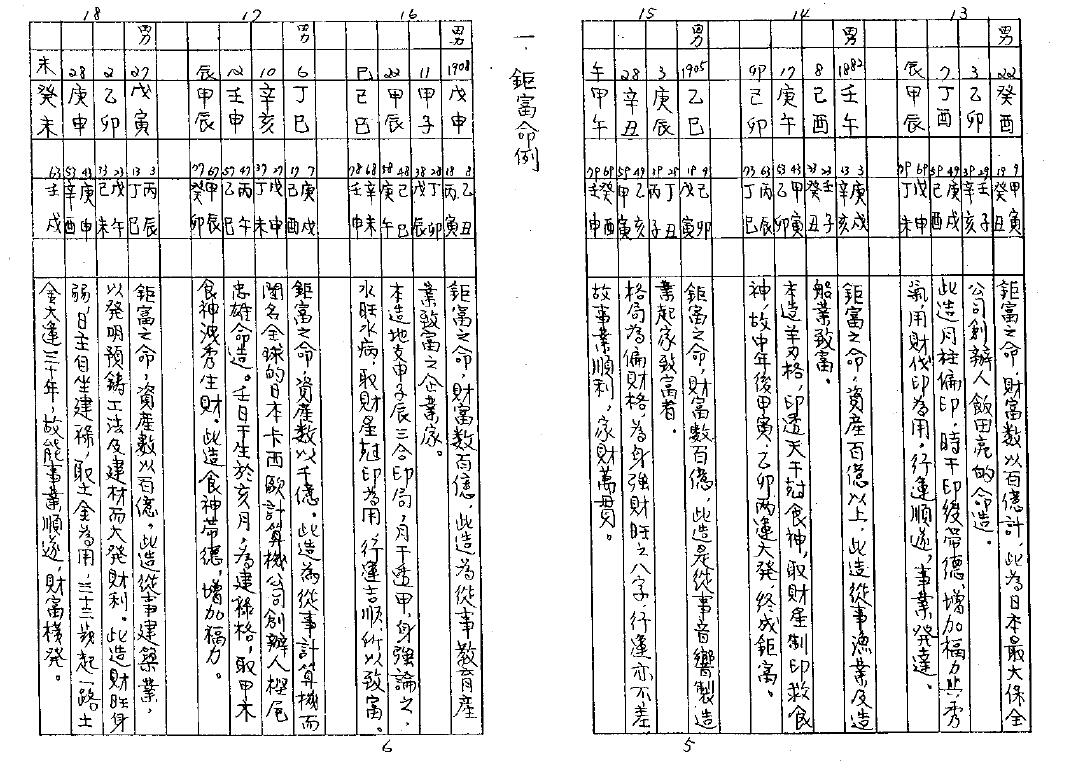 一、鉅富命例
13
男
22 癸酉
3 乙卯
7 丁酉
辰 甲辰
9 甲寅
19 癸丑
29 壬子
39 辛亥
49 庚戌
59 己酉
69 戊申
79 丁未
鉅富之命,財富數以百億計,此為日本最大保全
公司創辦人飯田亮的命造。
此造月柱偏印,時干印綬帶德增加福力,
氣用財伐印為用。行運順遂,事業發達。
14
男
1882 壬午
8 己酉
17 庚午
卯 己卯
3 庚戌
13 辛亥
23 壬子
33 癸丑
43 甲寅
53 乙卯
63 丙辰
73 丁巳
鉅富之命,資產百億以上,此造從事漁業及造
船業致富。
本造羊刃格,印透天干尅食神,取財星制印救食
神,故中年後甲寅、乙卯兩運大發,終成鉅富。
15
男
1905 乙巳
3 庚辰
28 辛丑
午 甲午
9 己卯
19 戊寅
29 丁丑
39 丙子
49 乙亥
59 甲戌
69 癸酉
79 壬申
鉅富之命,財富數百億,此造是從事音響製造
業起家致富者。
格局為偏財格,為身強財旺之八字,行運亦不差,
故事業順利,家財萬貫。
5
16
男
1908 戊申
11 甲子
22 甲辰
巳 己巳
8 乙丑
18 丙寅
28 丁卯
38 戊辰
48 己巳
58 庚午
68 辛未
78 壬申
鉅富之命,財富數百億,此造為從事教育產
業致富之企業家。
本造地支申子辰三合印局,月干透甲,身強論之,
水旺水病,取財星尅印為用,行運吉順,所以致富。
17
男
6 丁巳
10 辛亥
12 壬申
辰 甲辰
7 庚戌
17 己酉
27 戊申
37 丁未
47 丙午
57 乙巳
67 甲辰
77 癸卯
鉅富之命,資產數以千億。此造為從事計算機而
聞名全球的日本卡西歐計算機公司創辦人樫尾
忠雄命造。壬日干生於亥月,為建祿格,取甲木
食神洩秀生財。此造食神帶德,增加福力。
18
男
27 戊寅
2 乙卯
28 庚申
未 癸未
3 丙辰
13 丁巳
23 戊午
33 己未
43 庚申
53 辛酉
63 壬戌
鉅富之命,資產數以百億,此造從事建築業,
以發明預鑄工法及建材而大發財利。此造財旺身
弱,日主自坐建祿,取土金為用,三十三歲起一路土
金大運三十年,故能事業順遂,財富橫發。
6